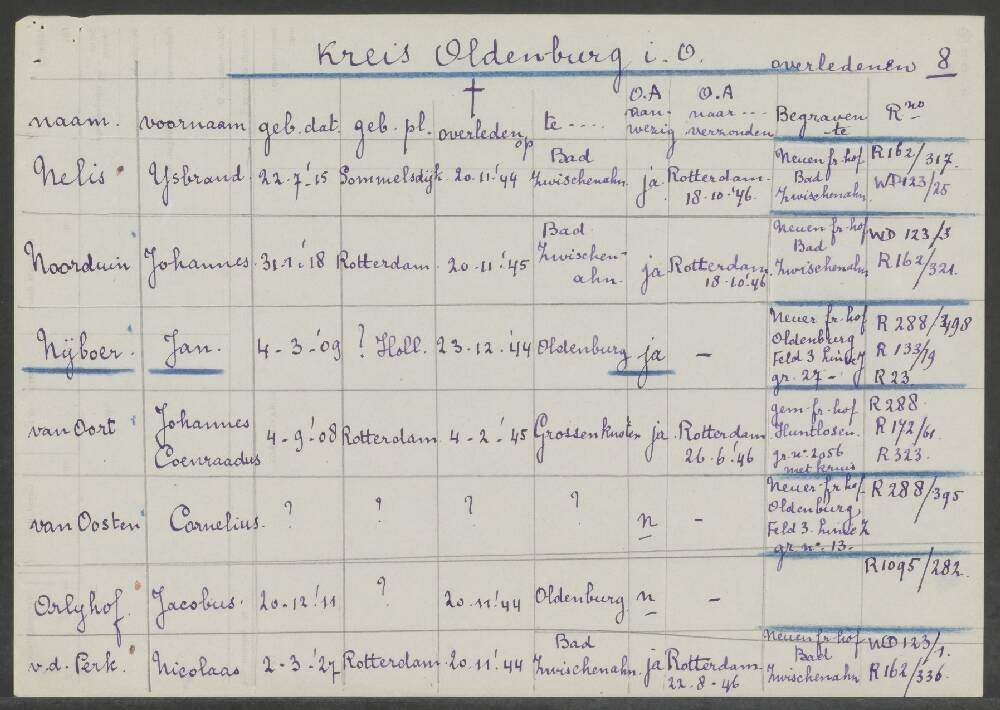 Kreis Oldenburg i. O. overledenen 8
naam. voornaam geb. dat. geb. pl. † overleden op te .... O.A aan- wezig O.A naar .... verzonden Begraven te R no
Nelis Ysbrand 22-7-'15 Sommelsdijk 20-11-'44 Bad Zwischenahn. ja Rotterdam 18-10-'46 Neuen fr. hof Bad Zwischenahn R162/317. WD 123/25
Noorduin Johannes 31-1-'18 Rotterdam 20-11-'45 Bad Zwischen-ahn. ja Rotterdam 18-10-'46 Neuen fr-hof Bad Zwischenahn WD 123/3 R162/321.
Nijboer Jan. 4-3-'09 ? Holl. 23-12-'44 Oldenburg ja – Neuer fr. hof Oldenburg Feld 3 gr. 27 - R 288/398 R 133/19 R 23
van Oort Johannes Coenraadus 4-9-'08 Rotterdam 4-2-'45 Grossenkneten ja Rotterdam 26-6-'46 gem-fr-hof Huntlosen gr. no. 2056 met kruis R 288. R 172/61. R 323.
van Oosten Cornelius. ? ? ? ? n – Neuer fr hof Oldenburg, Feld 3 gr no. 13. R 288/395
Orlyhof. Jacobus. 20-12-'11 ? 20-11-'44 Oldenburg n – R1095/282.
v.d. Perk. Nicolaas 2-3-'27 Rotterdam 20-11-'44 Bad Zwischenahn. ja Rotterdam 22-8-46 Neuen fr hof Bad Zwischenahn WD 123/1. R162/336.